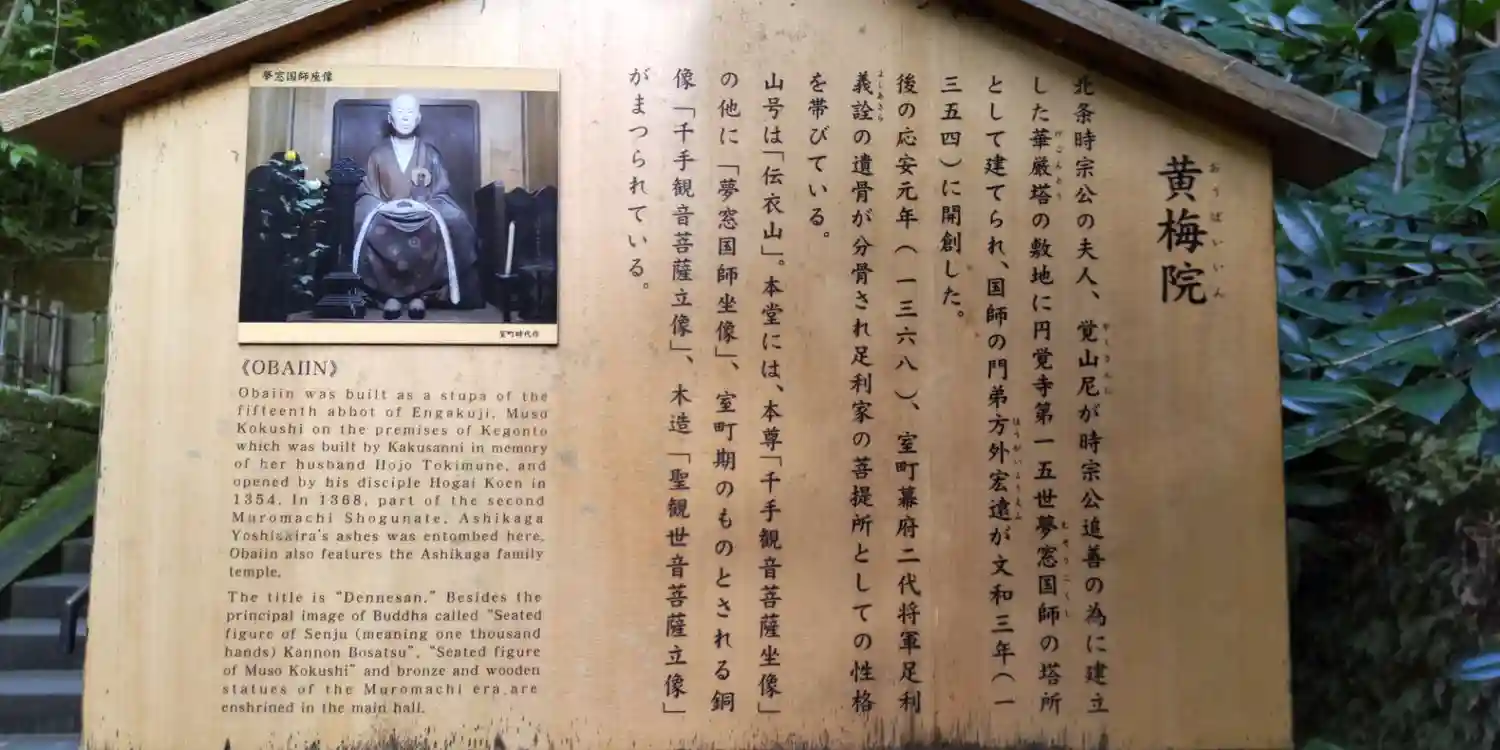 黄梅院
おうばいいん
北条時宗公の夫人、覚山尼が時宗公追善の為に建立
した華厳塔の敷地に円覚寺第一五世夢窓国師の塔所
として建てられ、国師の門弟方外宏遠が文和三年(一
三五四)に開創した。
後の応安元年(一三六八)、室町幕府二代将軍足利
義詮の遺骨が分骨され足利家の菩提所としての性格
を帯びている。
山号は「伝衣山」。本堂には、本尊「千手観音菩薩坐像」
の他に「夢窓国師坐像」、室町期のものとされる銅
像「千手観音菩薩立像」、木造「聖観世音菩薩立像」
がまつられている。
夢窓国師座像
室町時代作
《OBAIIN》
Obaiin was built as a stupa of the
fifteenth abbot of Engakuji, Muso
Kokushi on the premises of Kegonto
which was built by Kakusanni in memory
of her husband Hojo Tokimune, and
opened by his disciple Hogai Koen in
1354. In 1368, part of the second
Muromachi Shogunate, Ashikaga
Yoshiakira's ashes was entombed here.
Obaiin also features the Ashikaga family
temple.
The title is "Dennesan." Besides the
principal image of Buddha called "Seated
figure of Senju (meaning one thousand
hands) Kannon Bosatsu", "Seated figure
of Muso Kokushi" and bronze and wooden
statues of the Muromachi era are
enshrined in the main hall.